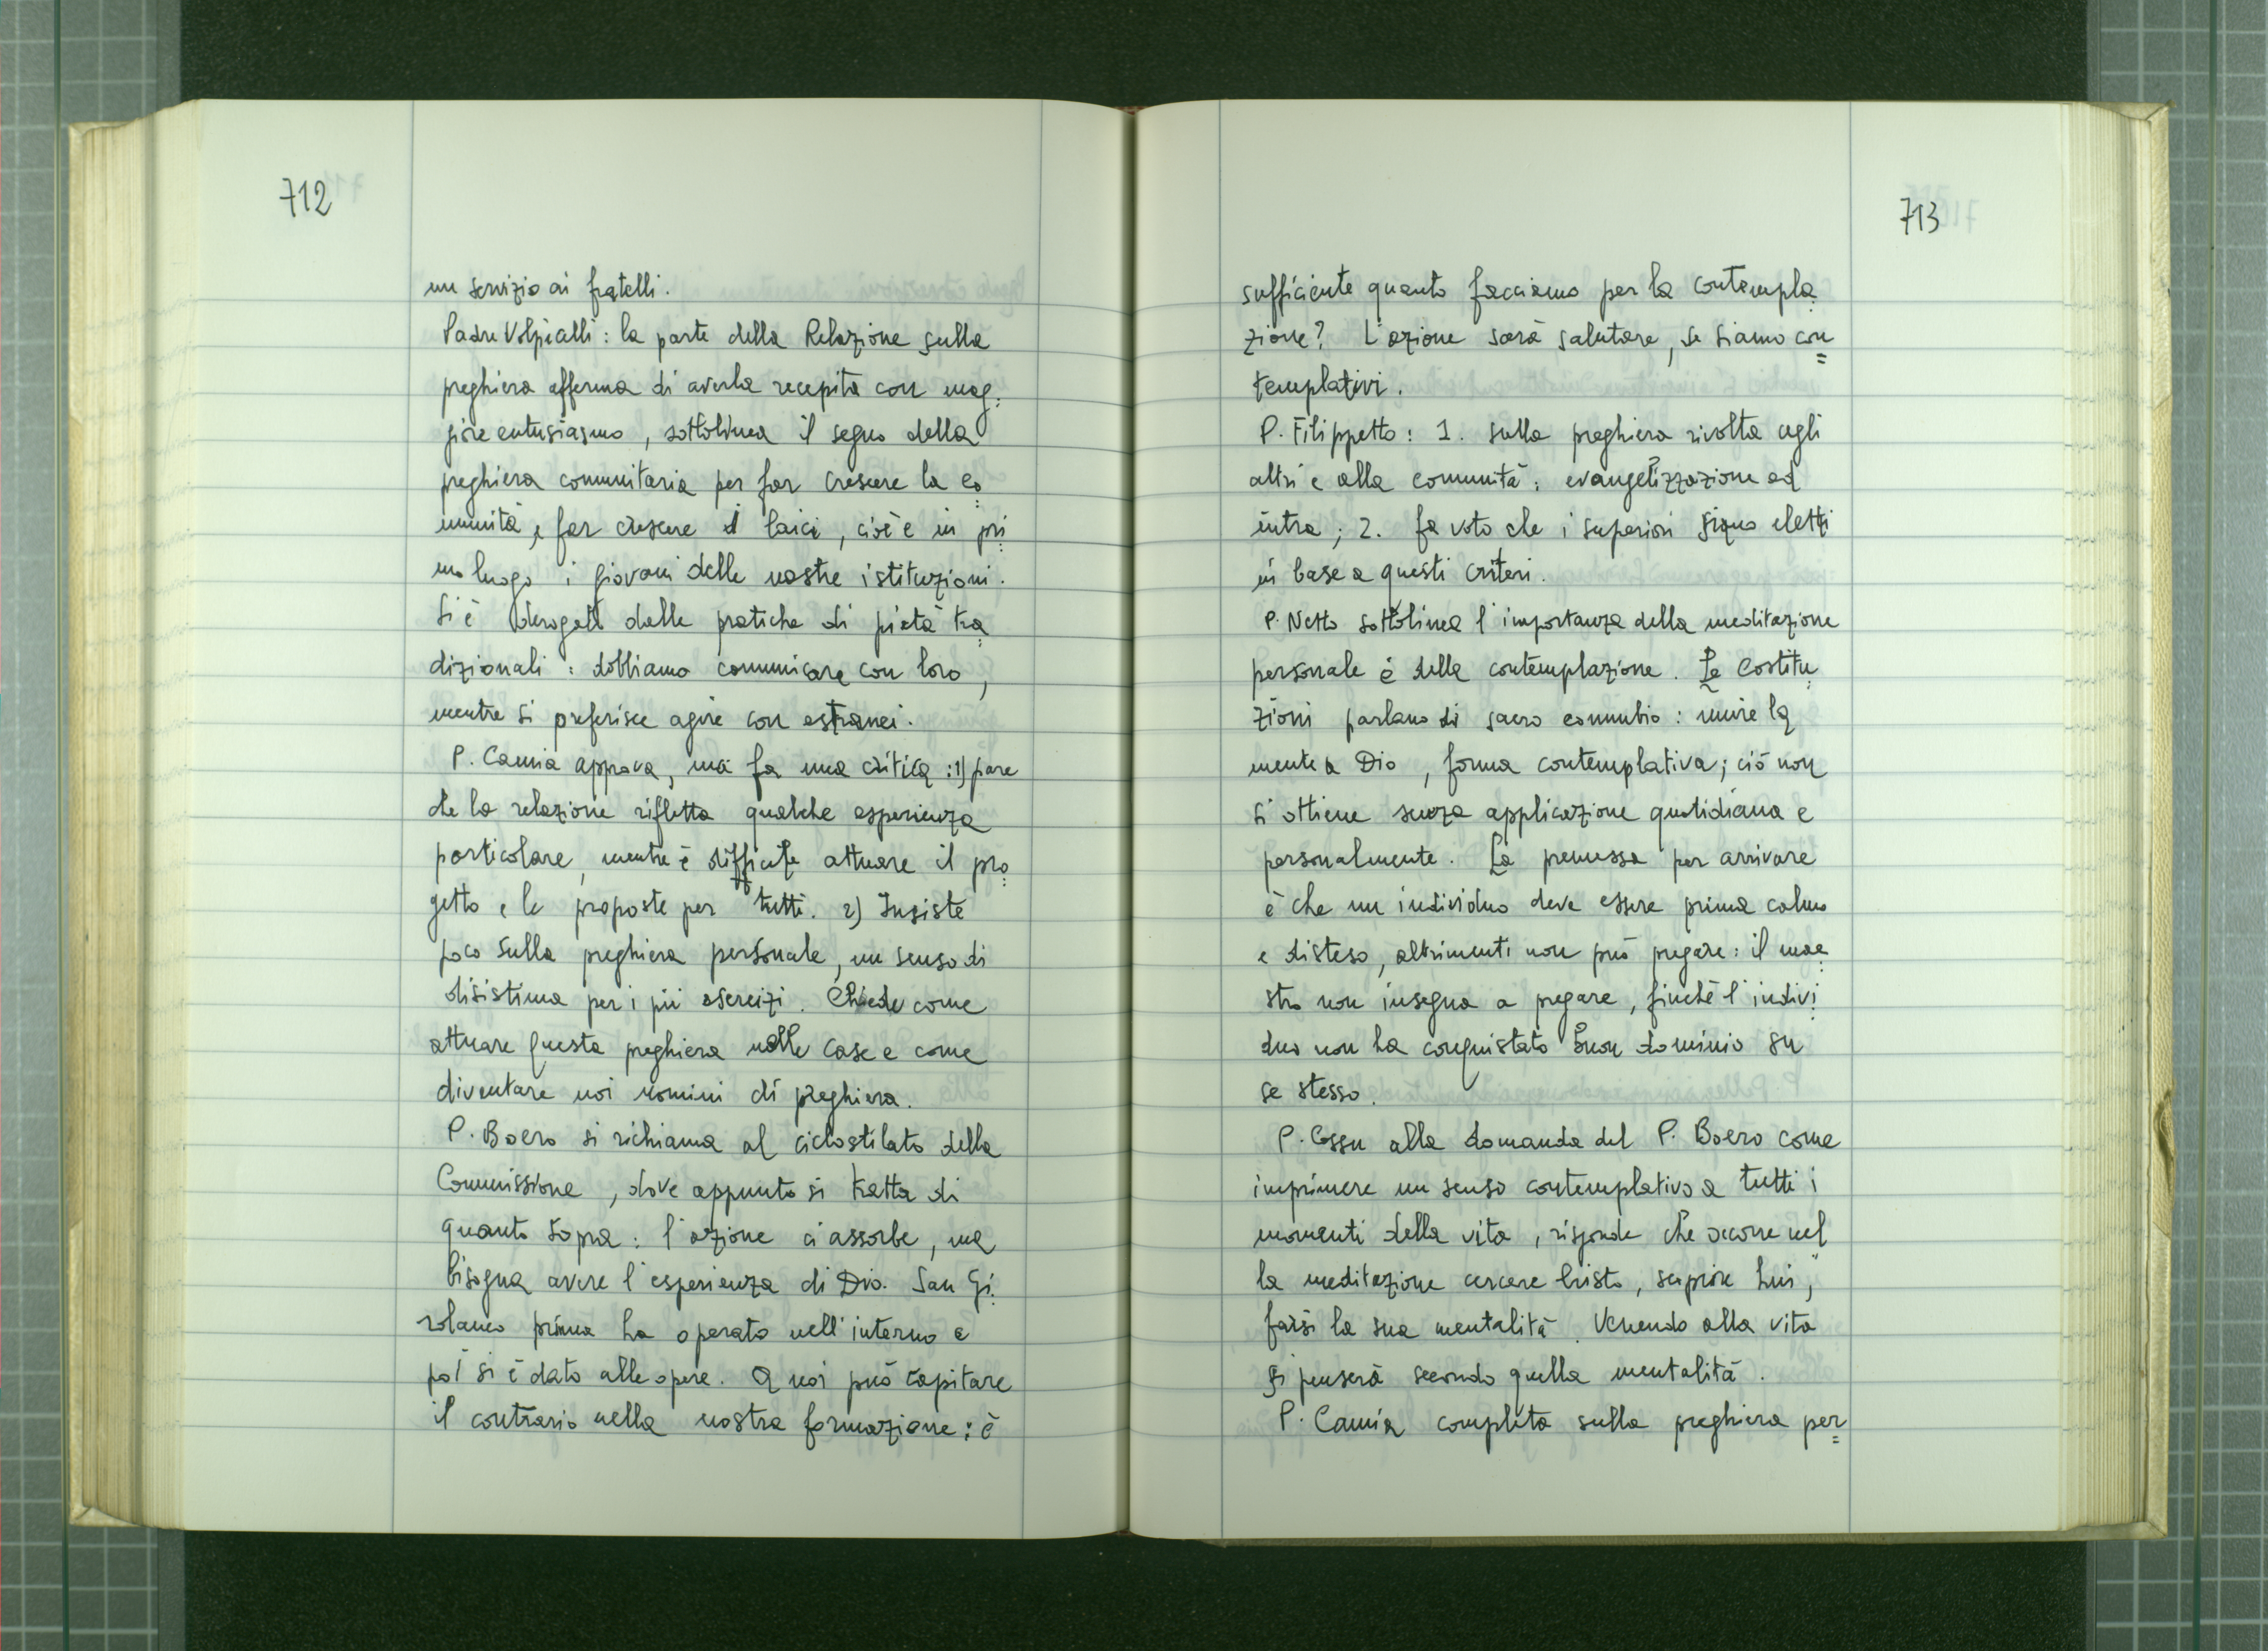 712
un servizio ai fratelli.
Padre Volpicelli: la parte della Relazione sulla
preghiera afferma di averla recepita con mag=
giore entusiasmo, sottolinea il segno della
preghiera comunitaria per far crescere la co=
munità, e far crescere i laici, cioè in pri=
mo luogo i giovani delle nostre istituzioni.
Si è derogato dalle pratiche di pietà tra=
dizionali: dobbiamo comunicare con loro,
mentre si preferisce agire con estranei.
P. Camia approva, ma fa una critica: 1) pare
che la relazione rifletta qualche esperienza
particolare, mentre è difficile attuare il pro=
getto e le proposte per tutti. 2) Insiste
poco sulla preghiera personale, un senso di
disistima per i pii esercizi. Chiede come
attuare questa preghiera nelle case e come
diventare noi uomini di preghiera.
P. Boero si richiama al ciclostilato della
Commissione, dove appunto si tratta di
quanto sopra: l'azione ci assorbe, ma
bisogna avere l'esperienza di Dio. San Gi=
rolamo prima ha operato nell'interno e
poi si è dato alle opere. A noi può capitare
il contrario nella nostra formazione: è
713
sufficiente quanto facciamo per la contempla=
zione? L'azione sarà salutare, se siamo con=
templativi.
P. Filippetto: 1. sulla preghiera rivolta agli
altri e alla comunità: evangelizzazione ad
intra; 2. fa voto che i superiori siano eletti
in base a questi criteri.
P. Netto sottolinea l'importanza della meditazione
personale e della contemplazione. Le Costitu=
zioni parlano di sacro connubio: unire la
mente a Dio, forma contemplativa; ciò non
si ottiene senza applicazione quotidiana e
personalmente. La premessa per arrivare
è che un individuo deve essere prima calmo
e disteso, altrimenti non può pregare: il mae=
stro non insegna a pregare, finché l'indivi=
duo non ha conquistato buon dominio su
se stesso.
P. Cossu alla domanda del P. Boero come
imprimere un senso contemplativo a tutti i
momenti della vita, risponde che occorre nel=
la meditazione cercare Cristo, scoprire Lui,
farsi la sua mentalità. Venendo alla vita
si penserà secondo quella mentalità.
P. Camia completa sulla preghiera per=